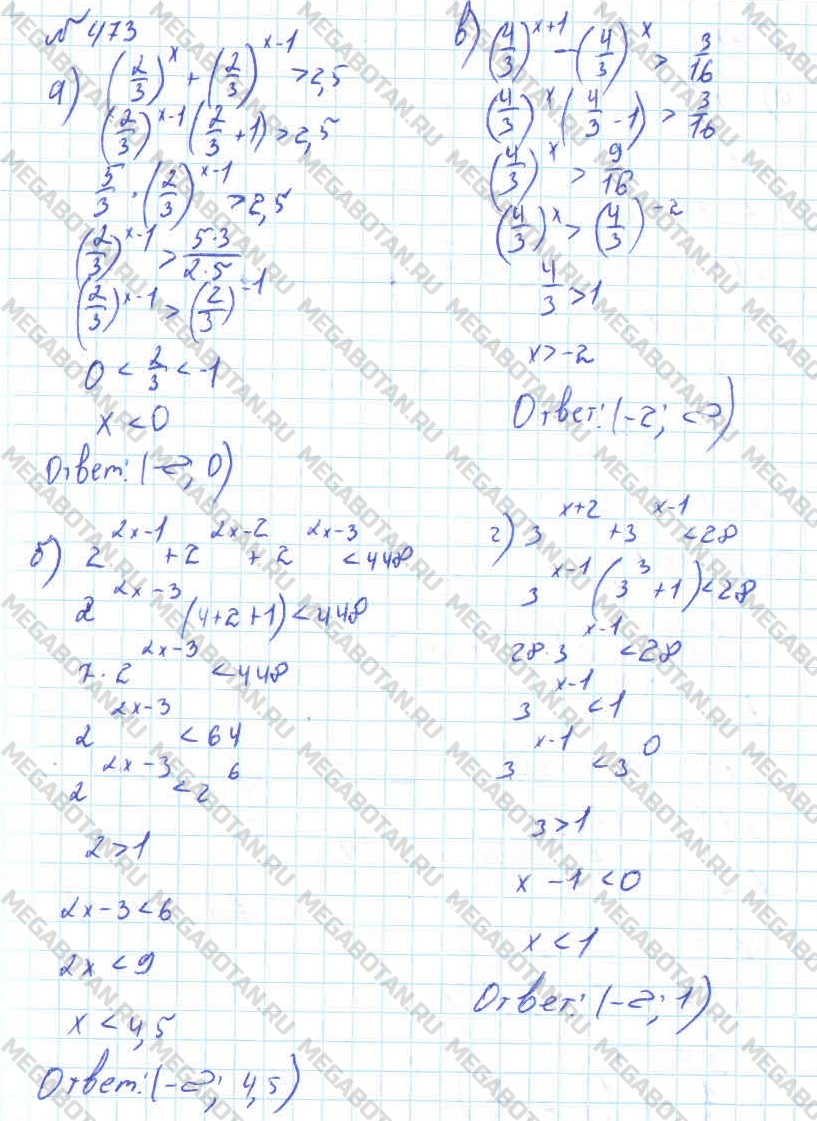 № 473
а) (2/3)^x + (2/3)^(x-1) > 2,5
(2/3)^(x-1) (2/3 + 1) > 2,5
5/3 · (2/3)^(x-1) > 2,5
(2/3)^(x-1) > 5·3/2·5
(2/3)^(x-1) > (2/3)^(-1)
0 < 2/3 < -1
x < 0
Ответ: (-∞; 0)
б) 2^(2x-1) + 2^(2x-2) + 2^(2x-3) < 448
2^(2x-3) (4+2+1) < 448
7 · 2^(2x-3) < 448
2^(2x-3) < 64
2^(2x-3) < 2^6
2 > 1
2x - 3 < 6
2x < 9
x < 4,5
Ответ: (-∞; 4,5)
в) (4/3)^(x+1) - (4/3)^x > 3/16
(4/3)^x (4/3 - 1) > 3/16
(4/3)^x > 9/16
(4/3)^x > (4/3)^(-2)
4/3 > 1
x > -2
Ответ: (-2; ∞)
г) 3^(x+2) + 3^(x-1) < 28
3^(x-1) (3^3 + 1) < 28
28 · 3^(x-1) < 28
3^(x-1) < 1
3^(x-1) < 3^0
3 > 1
x - 1 < 0
x < 1
Ответ: (-∞; 1)
MEGABOTAN.RU